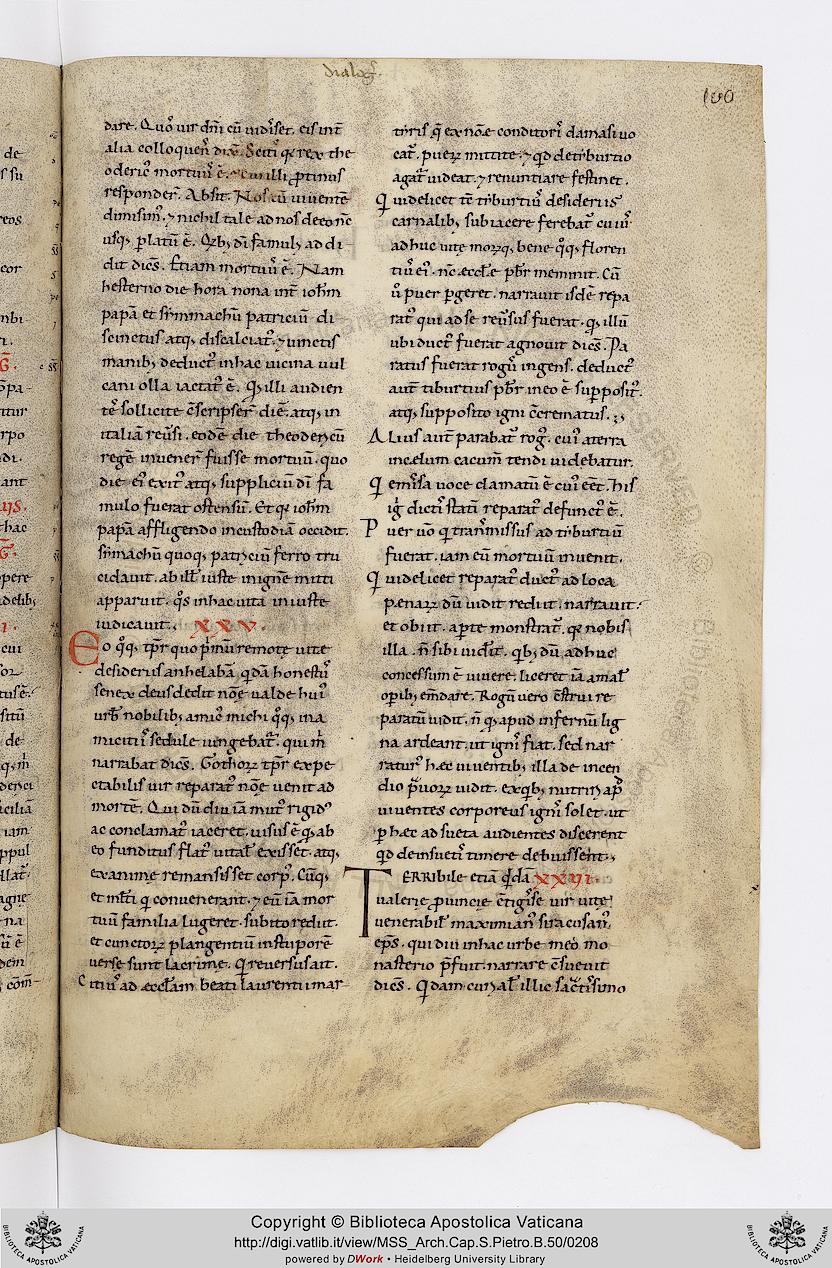 dialoḡ.
100
dare. Quō uir dn̄i cū uidiss&. eis int̄
alia colloquens dix̄. Scitis q̄ rex the
odericꝰ mortuus ē. cui illi ꝓtinus
responder̄. Absit. Nos eū uiuentē
dimisimꝰ. ⁊ nichil tale ad nos de eo nc̄
usq; ꝑlatū ē. Qb; dī famulꝰ addi
dit dicēs. Etiam mortuus ē. Nam
hesterno die hora nona int̄ ioh̄m
papā et symmachū patriciū di
scinctus atq; discalciatꝰ. ⁊ uinctis
manib; deductꝰ in hac uicina uul
cani olla iactatꝰ ē. Q; illi audien
tes sollicite c̄scripser̄ diē. atq; in
italiā reuersi. eodē die theodericū
regē inuener̄ fuisse mortuū. quo
die eiꝰ exitꝰ atq; suppliciū dī fa
mulo fuerat ostensū. Et q̄ ioh̄m
papā affligendo in custodiā occidit.
symachū quoq; patriciū ferro tru
cidauit. ab illis iuste in igne mitti
apparuit. q̄s in hac uita iniuste
iudicauit. XXV.
Eo q̄q; tp̄r quo p̄mū remotę uitę
desideriis anhelabā. q̄dā honestꝰ
senex deusdedit nōe ualde huiꝰ
urbis nobilib; amicꝰ michi q̄q; in a
miciciis sedule iungebat̄. qui m̄
narrabat dicēs. Gothorꝝ tp̄r expe
ctabilis uir reparatꝰ nōe uenit ad
mortē. Qui dū diu iā mutꝰ rigidꝰ
ac conclamatꝰ iaceret. uisus ē q; ab
eo funditus flatꝰ uitalis exisset. atq;
exanime remansisset corpꝰ. Cūq;
et mlti q̄ conuenerant. ⁊ eū iā mor
tuū familia lugeret. subito rediit.
et cunctorꝝ plangentiū in stuporē
uersę sunt lacrimę. Q reuersus ait.
Citiꝰ ad eccłam beati laurentii mar
tiris q̄ ex nōe conditoris damasi uo
cat̄. puerꝝ mittite. ⁊ q̄d de tyburtio
agat̄ uideat. ⁊ renuntiare festinet.
Qui uidelicet tc̄ tyburtiꝰ desideriis
carnalib; subiacere ferebat̄. cuiꝰ
adhuc uitę morꝝq; bene q̄q; floren
tiꝰ eiꝰ. nc̄ ecclę pbr̄ meminit. Cū
ū puer ꝑgeret. narrauit isdē repa
ratꝰ qui ad se reūsus fuerat. q; illū
ubi ductꝰ fuerat agnouit dicēs. Pa
ratus fuerat rogꝰ ingens. deductꝰ
aut̄ tiburtius pbr̄ in eo ē suppositꝰ.
atq; supposito igni c̄crematus.
Alius aut̄ parabat̄ rogꝰ. cuiꝰ a terra
in cęlum cacum̄ tendi uidebatur.
Qem̄sa uoce clamatū ē cuiꝰ eēt. His
iḡ dictis statī reparatꝰ defunctꝰ ē.
Puer uō q̄ transmissus ad tyburtiū
fuerat. iam eū mortuū inuenit.
Qui uidelicet reparatꝰ ductꝰ ad loca
pęnarꝝ dū uidit rediit. narrauit.
et obiit. aꝑte monstrat̄. q̄ nobis
illa. n̄ sibi uidit. qb; dū adhuc
concessum ē uiuere. liceret iā a malis
opib; em̄dare. Rogū uero c̄strui re
paratꝰ uidit. n̄ q̄ apud infernū lig
na ardeant. ut ignis fiat. sed nar
raturꝰ hęc uiuentib; illa de incen
dio prauorꝝ uidit. ex qb; nutriri ap̄
uiuentes corporeus ignis solet. ut
ꝑ hęc adsueta audientes discerent
q̄d de insuetis timere debuissent.
Terribile etiā q̄dā XXVI.
ualerię ꝓuincię c̄tigisse uir uitę
uenerabilis maximianꝰ siracusanꝰ
eps̄. qui diu in hac urbe meo mo
nasterio p̄fuit. narrare c̄sueuit
dicēs. Qdam curialis illic sacratissimo
Copyright © Biblioteca Apostolica Vaticana
http://digi.vatlib.it/view/MSS_Arch.Cap.S.Pietro.B.50/0208
powered by DWork • Heidelberg University Library